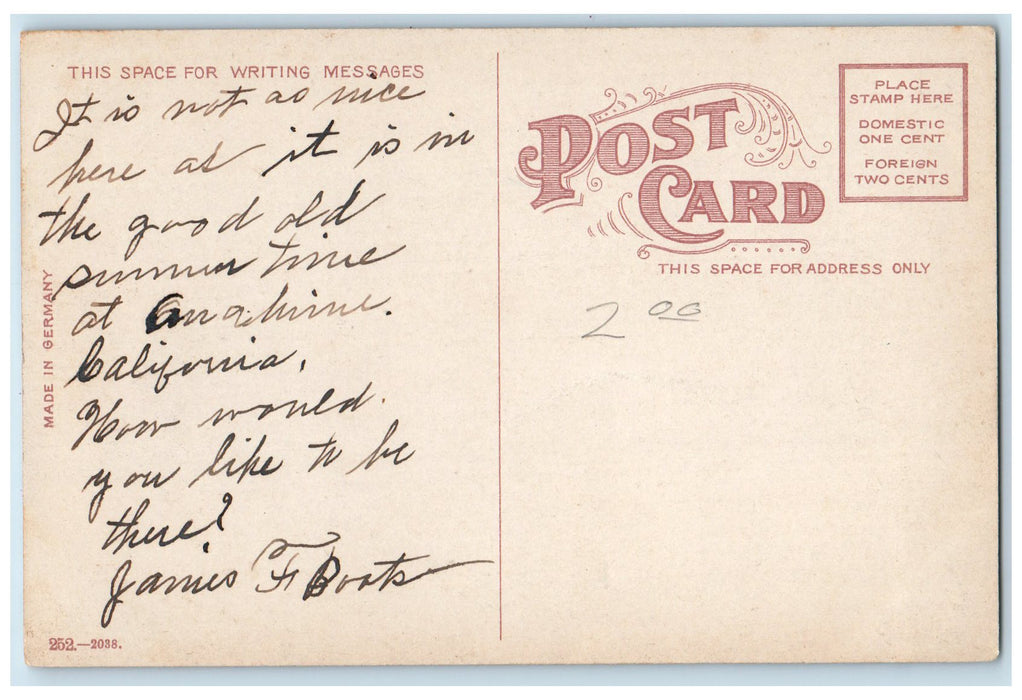 THIS SPACE FOR WRITING MESSAGES
It is not as nice
here as it is in
the good old
summer time
at Anahime.
California.
How would.
you like to be
there?
James F Boots
MADE IN GERMANY
252.—2038.
POST
CARD
THIS SPACE FOR ADDRESS ONLY
PLACE
STAMP HERE
DOMESTIC
ONE CENT
FOREIGN
TWO CENTS
2 00